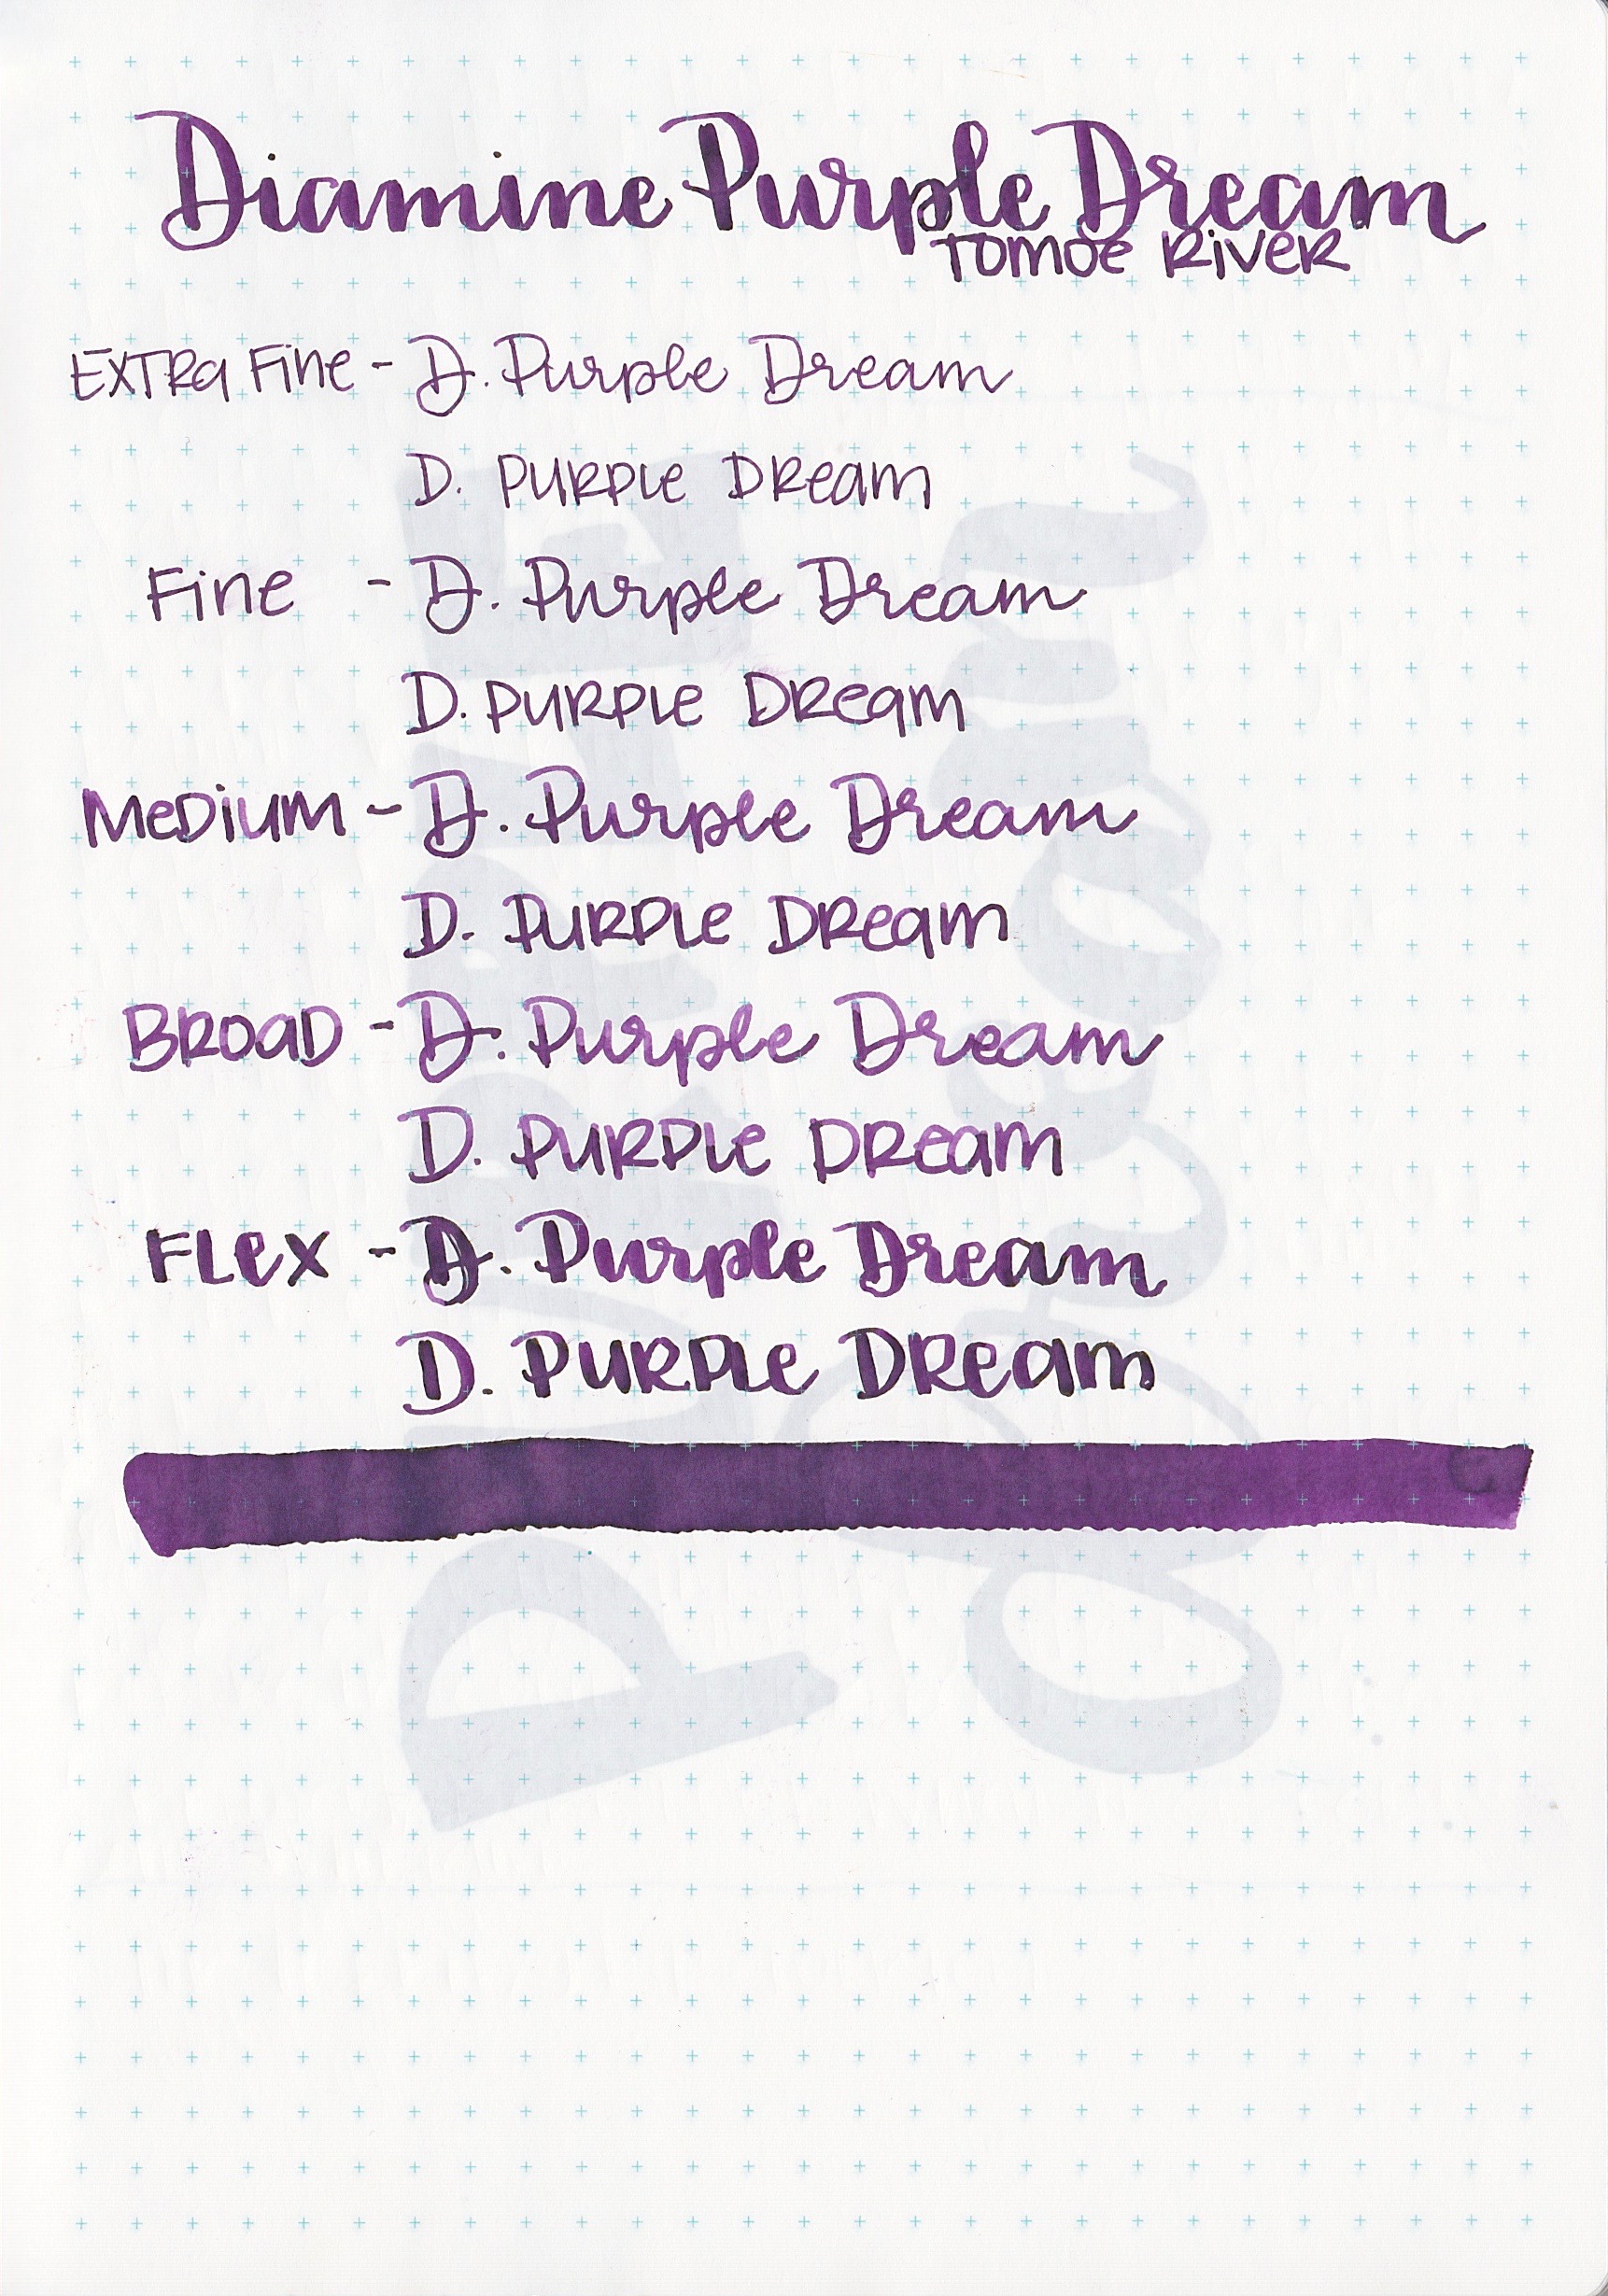 Diamine Purple Dream
Tomoe River
Extra Fine - D. Purple Dream
D. Purple Dream
Fine - D. Purple Dream
D. Purple Dream
Medium - D. Purple Dream
D. Purple Dream
Broad - D. Purple Dream
D. Purple Dream
Flex - D. Purple Dream
D. Purple Dream
PURPLE
Dream